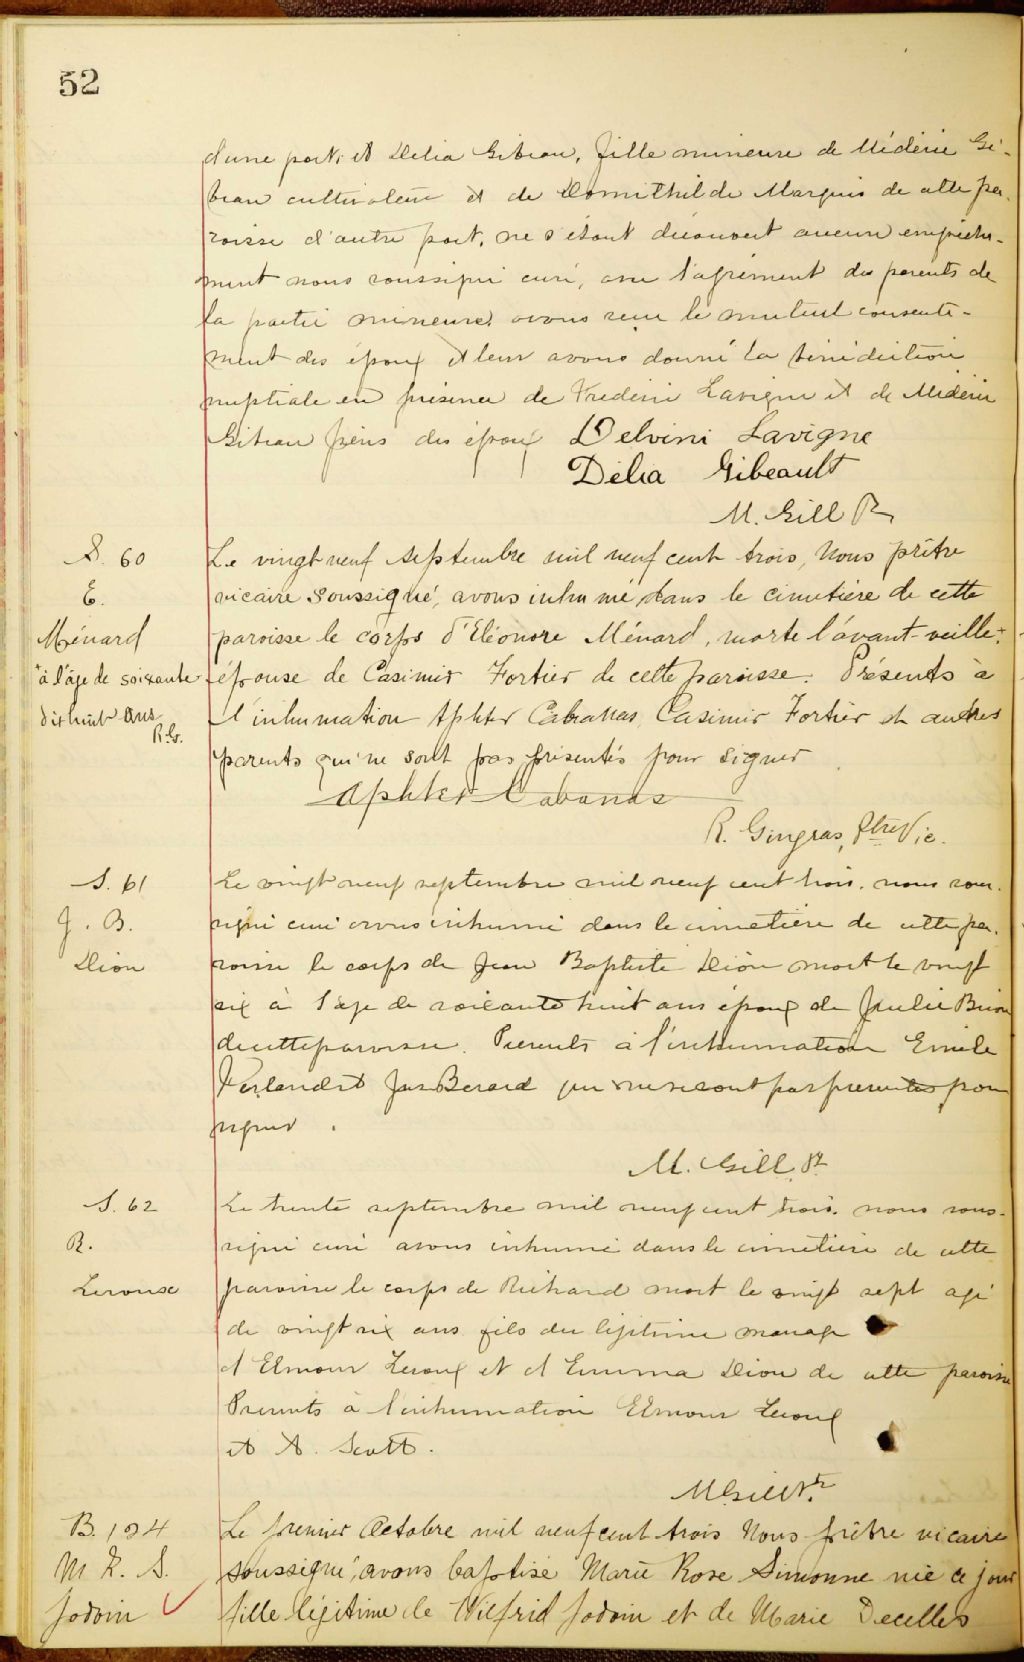 52
d'une part, et Delia Gibeau, fille mineure de Médéric Gi-
beau cultivateur et de Domithilde Marquis de cette pa-
roisse d'autre part, ne s'étant découvert aucun empêche-
ment nous soussigné curé, avec l'agrément des parents de
la partie mineure, avons reçu le mutuel consente-
ment des époux et leur avons donné la bénédiction
nuptiale en présence de Frederic Lavigne et de Médéric
Gibeau pères des époux Delvini Lavigne
Délia Gibeault
M. Gill Ptr
S. 60
E.
Ménard
+ à l'âge de soixante
dix huit ans
R. G.
Le vingt neuf septembre mil neuf cent trois, Nous prêtre
vicaire soussigné, avons inhumé dans le cimetière de cette
paroisse le corps d'Eléonore Ménard, morte l'avant-veille +
épouse de Casimir Fortier de cette paroisse. Présents à
l'inhumation Aphter Cabanas, Casimir Fortier et autres
parents qui ne sont pas présentés pour signer
Aphter Cabanas
R. Gingras, Ptre Vic.
S. 61
J. B.
Dion
Le vingt neuf septembre mil neuf cent trois, nous sous-
signé curé avons inhumé dans le cimetière de cette pa-
roisse le corps de Jean Baptiste Dion mort le vingt
six à l'age de soixante huit ans époux de Julie
de cette paroisse. Presents à l'inhumation Emile
et Jos Berard qui ne se sont pas presentés pour
signer.
M. Gill Pt
S. 62
R.
Leroux
Le trente septembre mil neuf cent trois, nous sous-
signé curé avons inhumé dans le cimetière de cette
paroisse le corps de Richard mort le vingt sept agé
de vingt six ans fils du légitime mariage
d'Elmour Leroux et d'Emma Dion de cette paroisse
Presents à l'inhumation Elmour Leroux
et A. Scott.
M Gill Pt.
B. 124
M. R. S.
Jodoin
Le premier Octobre mil neuf cent trois Nous prêtre vicaire
soussigné, avons baptisé Marie Rose Simonne née ce jour
fille légitime de Wilfrid Jodoin et de Marie Decelles